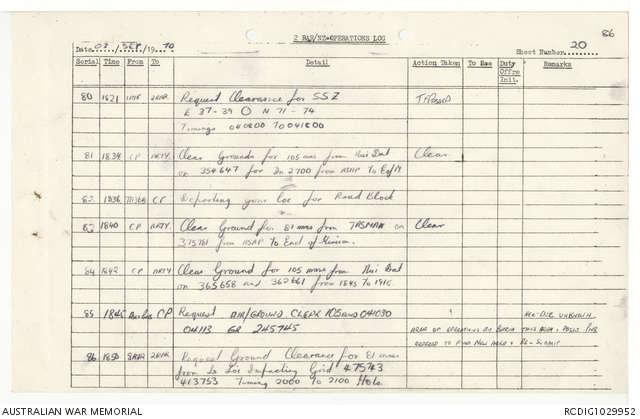 86
2 RAR/NZ OPERATIONS LOG
Date 03 / SEP / 19 70
Sheet Number 20
Serial Time From To Detail Action Taken To See Duty Offrs Init. Remarks
80 1821 2RAR Request Clearance for SSZ
E 37-39 N 71-74
Timings 040800 To 041800
81 1834 CP ARTY Clear Grounds for 105 mms from Nui Dat Clear
on 354647 for 2100 from ASAP To EofM
82 1836 CP Departing your loc for Road Block
83 1840 CP ARTY Clear Ground for 81 mms from TASMAN on Clear
375781 from ASAP To End of Mission.
84 1842 CP ARTY Clear Ground for 105 mms from Nui Dat
on 365658 and 362661 from 1845 To 1915.
85 1845 CP Request AIR/GROUND CLEAR
GR 245745
AREA OF OPERATIONS
86 1850 2RAR Request Ground Clearance for 81 mms
from Loc Impacting Grid 475743
413753 Timing 2000 To 2100 Hrs.
AUSTRALIAN WAR MEMORIAL
RCDIG1029952